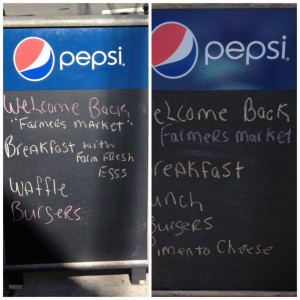 pepsi
Welcome Back
"Farmers Market"
Breakfast with
Farm Fresh
Eggs
Waffle
Burgers
pepsi
elcome Back
Farmers Market
reakfast
unch
Burgers
imento Cheese